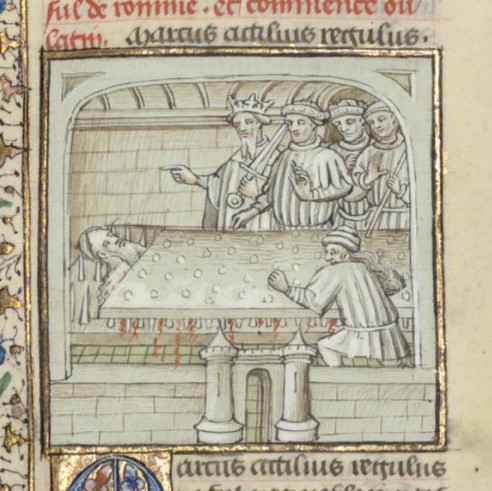 sul de romme. et commence ou
latin. Marcus actilius regulus.
arcus actilius regulus